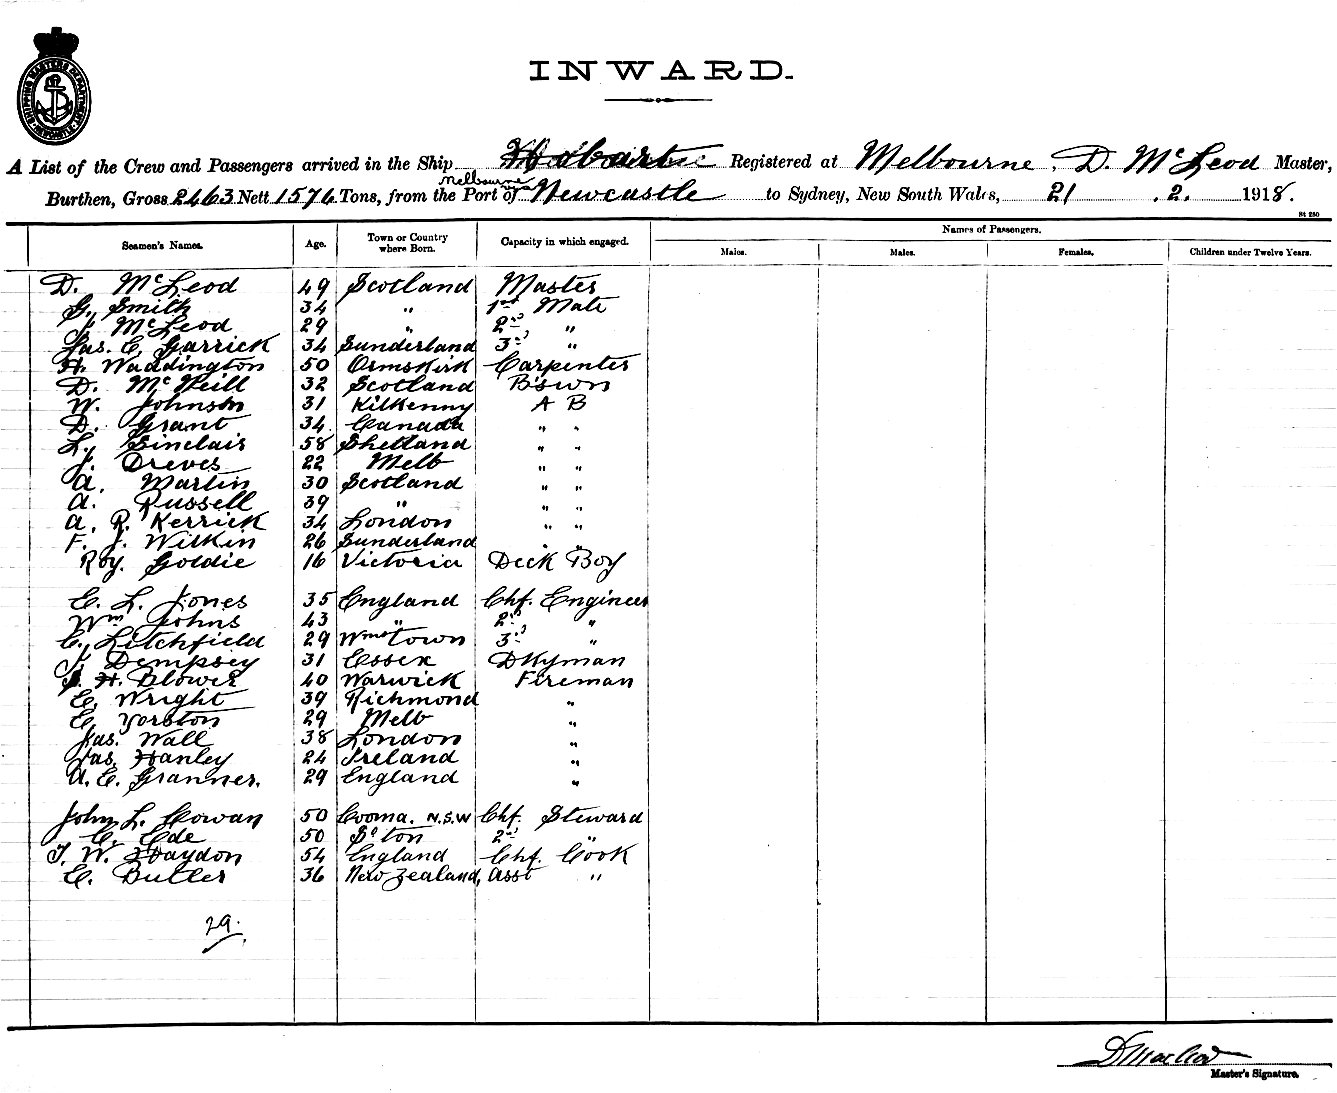 SHIPPING MASTERS DEPARTMENT NEWCASTLE
INWARD.
A List of the Crew and Passengers arrived in the Ship Hobart Registered at Melbourne, D. McLeod Master,
Melbourne
Burthen, Gross 2463 Nett 1576 Tons, from the Port of Newcastle to Sydney, New South Wales, 21 . 2. 1918.
St 250
Seamen's Names. Age. Town or Country where Born. Capacity in which engaged. Names of Passengers.
Males. Males. Females. Children under Twelve Years.
D. McLeod 49 Scotland Master
G. Smith 34 " 1st Mate
J. McLeod 29 " 2nd "
Jas. C. Garrick 34 Sunderland 3rd "
H. Waddington 50 Ormskirk Carpenter
D. McNeill 32 Scotland B'swn
W. Johnson 31 Kilkenny A B
D. Grant 34 Canada " "
L. Sinclair 58 Shetland " "
J. Dreves 22 Melb " "
A. Martin 30 Scotland " "
A. Russell 39 " " "
A. R. Kerrick 34 London " "
F. J. Wilkin 26 Sunderland " "
Roy. Goldie 16 Victoria Deck Boy
C. L. Jones 35 England Chf. Engineer
Wm Johns 43 " 2nd "
C. Litchfield 29 Wmstown 3rd "
J. Dempsey 31 Essex Dkyman
H. Blower 40 Warwick Fireman
C. Wright 39 Richmond "
C. Yorston 29 Melb "
Jas. Wall 38 London "
Jas. Hanley 24 Ireland "
A. E. Granner. 29 England "
John L. Cowan 50 Cooma. N.S.W Chf. Steward
C. Ede 50 So'ton 2nd "
T. W. Haydon 54 England Chf. Cook
C. Butler 36 New Zealand, Asst "
29.
D Macleod
Master's Signature.